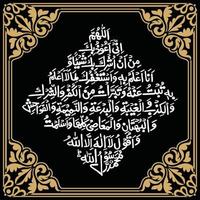 اللهم
إني أعوذ بك
من أن أشرك بك شيئا و
أنا أعلم به وأستغفرك لما لا أعلم
به تبت عنه وتبرأت من الكفر والشرك
والكذب والغيبة والبدعة والنميمة والفواحش
والبهتان والمعاصي كلها وأسلمت
وأقول لا إله إلا الله
محمد رسول الله